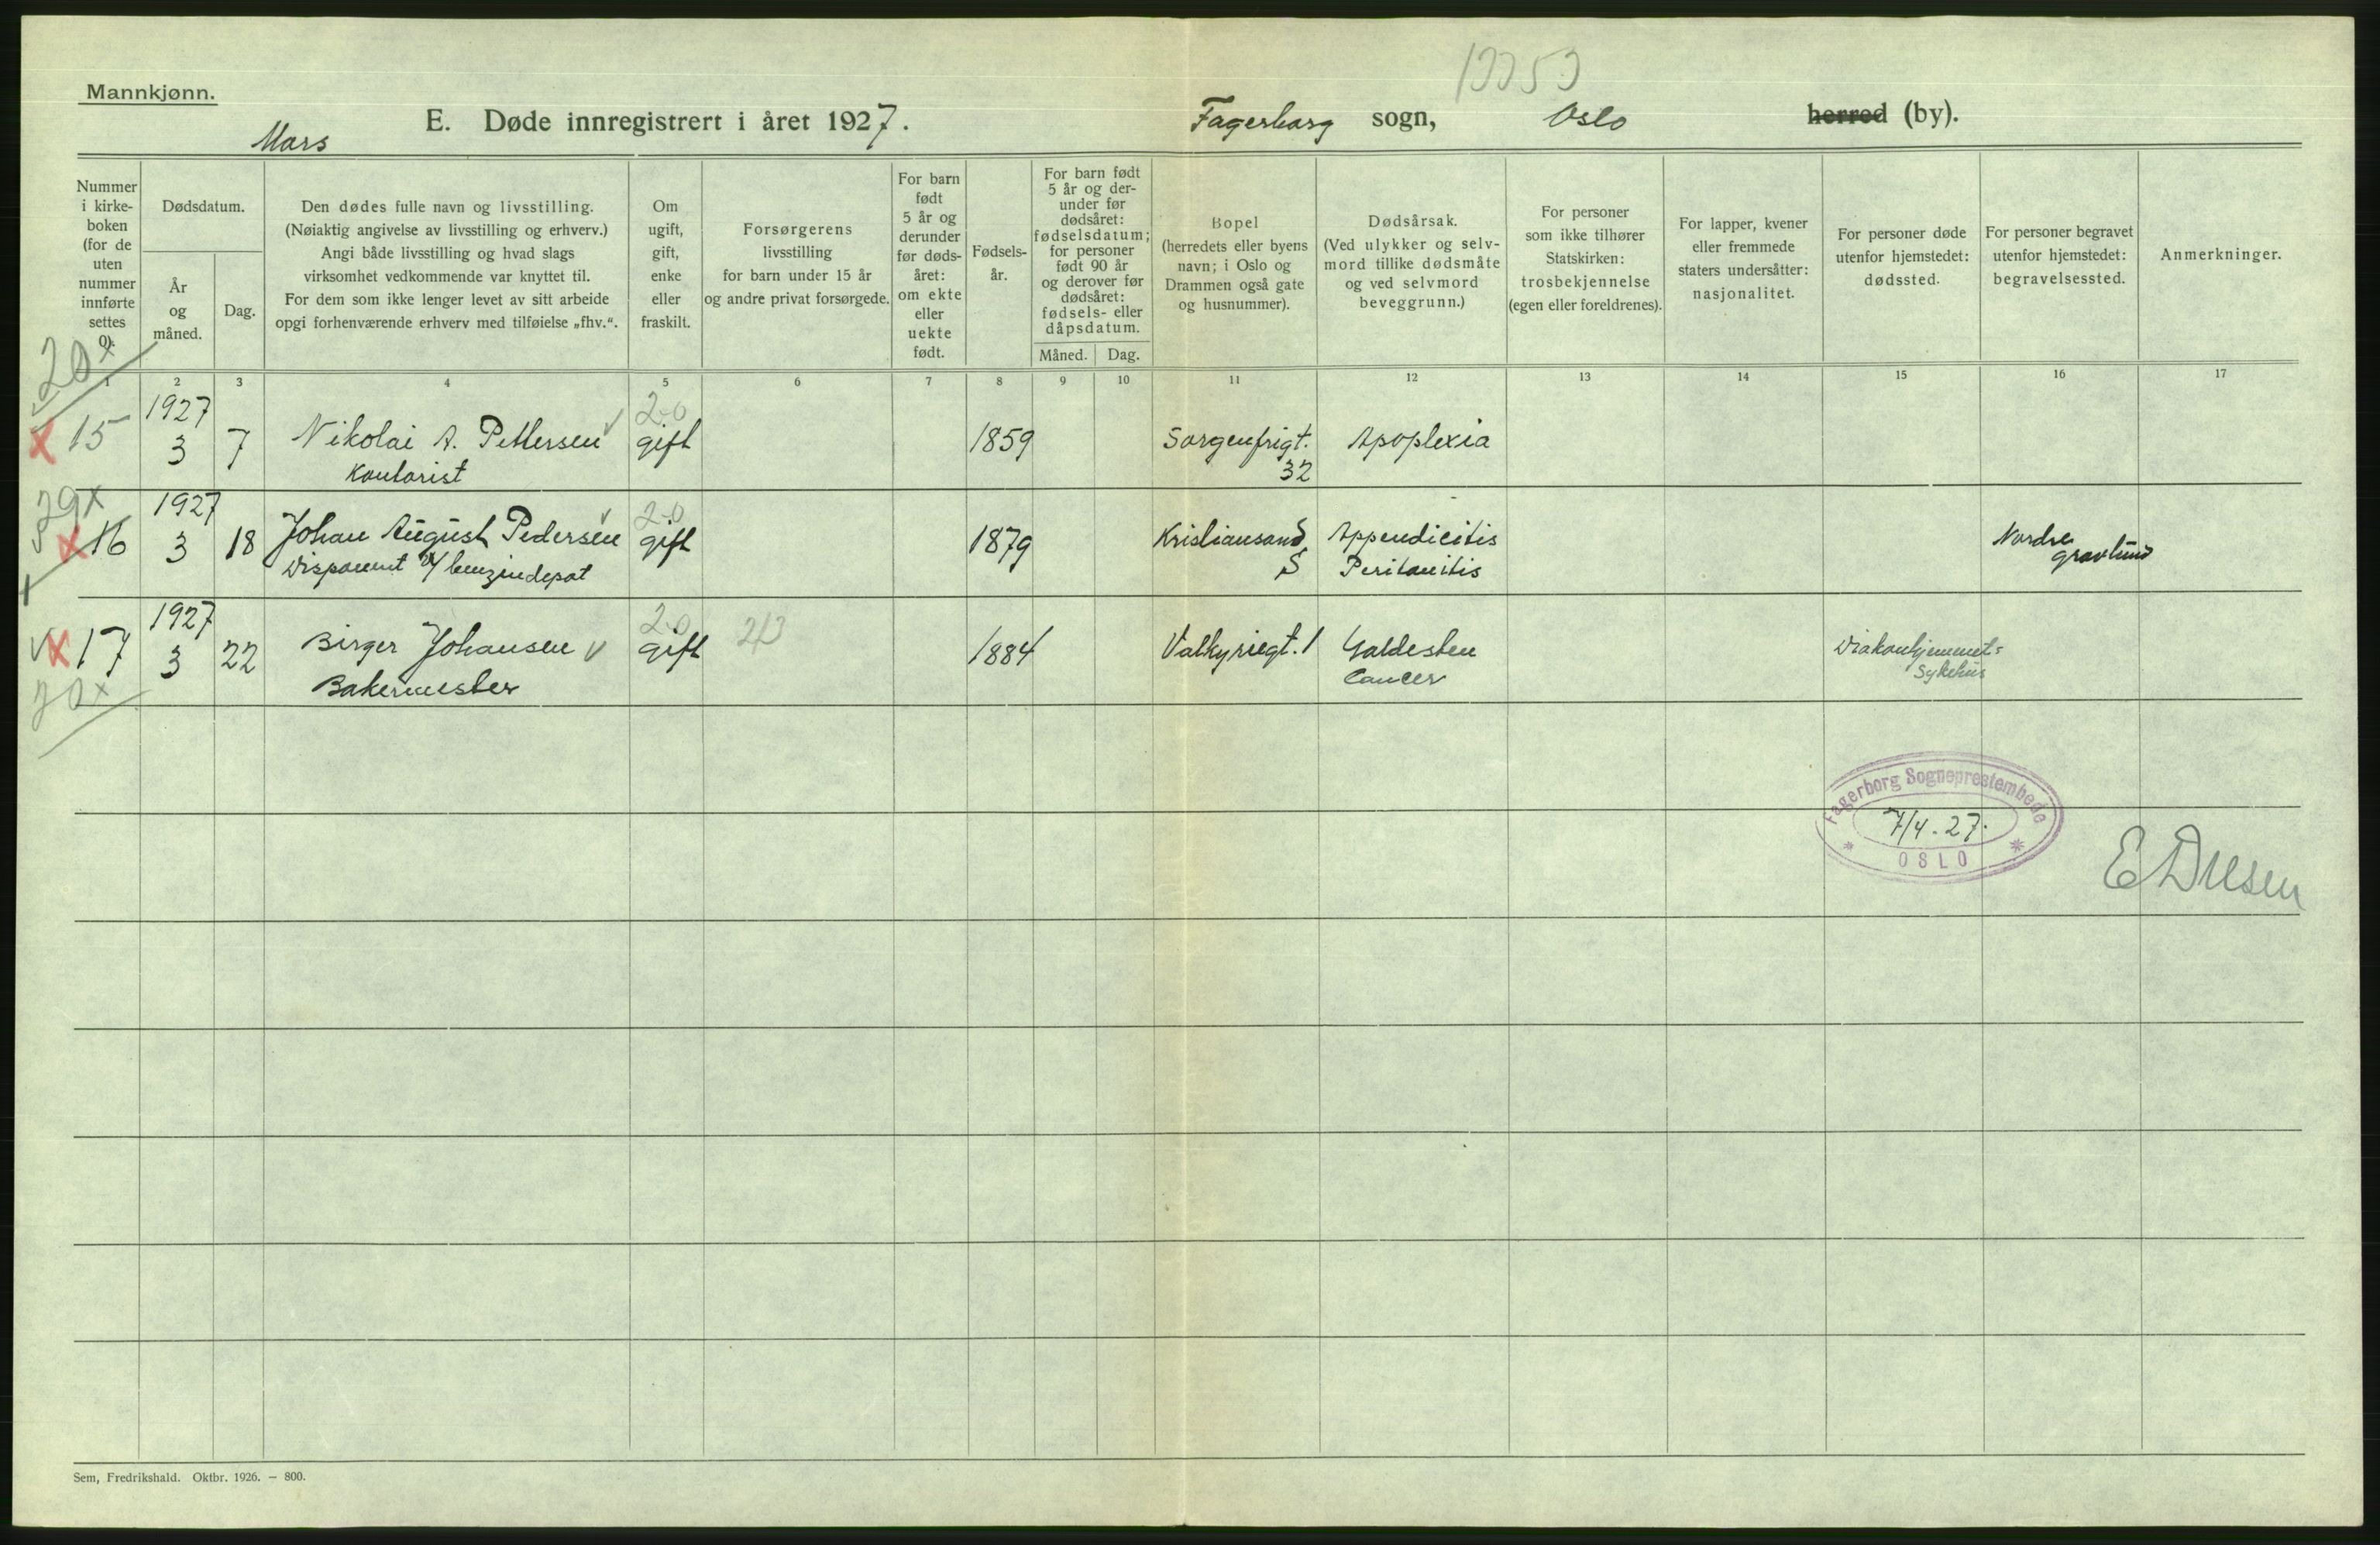 Mannkjønn.
Mars
E. Døde innregistrert i året 1927.
Fagerborg sogn, Oslo herred (by).
Nummer
i kirke-
boken
(for de
uten
nummer
innførte
settes
0).
Dødsdatum.
År
og
måned.
Dag.
Den dødes fulle navn og livsstilling.
(Nøiaktig angivelse av livsstilling og erhverv.)
Angi både livsstilling og hvad slags
virksomhet vedkommende var knyttet til.
For dem som ikke lenger levet av sitt arbeide
opgi forhenværende erhverv med tilføielse „fhv.“.
Om
ugift,
gift,
enke
eller
fraskilt.
Forsørgerens
livsstilling
for barn under 15 år
og andre privat forsørgede.
For barn
født
5 år og
derunder
før døds-
året:
om ekte
eller
uekte
født.
Fødsels-
år.
For barn født
5 år og der-
under før
dødsåret:
fødselsdatum;
for personer
født 90 år
og derover før
dødsåret:
fødsels- eller
dåpsdatum.
Måned. Dag.
Bopel
(herredets eller byens
navn; i Oslo og
Drammen også gate
og husnummer).
Dødsårsak.
(Ved ulykker og selv-
mord tillike dødsmåte
og ved selvmord
beveggrunn.)
For personer
som ikke tilhører
Statskirken:
trosbekjennelse
(egen eller foreldrenes).
For lapper, kvener
eller fremmede
staters undersåtter:
nasjonalitet.
For personer døde
utenfor hjemstedet:
dødssted.
For personer begravet
utenfor hjemstedet:
begravelsessted.
Anmerkninger.
1 2 3 4 5 6 7 8 9 10 11 12 13 14 15 16 17
20x
1927 2-0
x 15 3 7 Nikolai A. Pettersen v gift 1859 Sorgenfrigt. Apoplexia
Kontorist 32
1927 2-0
x 16 3 18 Johan August Pedersen v gift 1879 Kristiansand Appendicitis Nordre
Disponent v/ benzindepot S Peritonitis gravlund
1927 2-0 213
v x 17 3 22 Birger Johansen v gift 1884 Valkyriegt. 1 Galdesten Diakonhjemmets
Bakermester Cancer Sykehus
Fagerborg Sogneprestembede
7/4. 27.
* OSLO *
Sem, Fredrikshald. Oktbr. 1926. — 800.